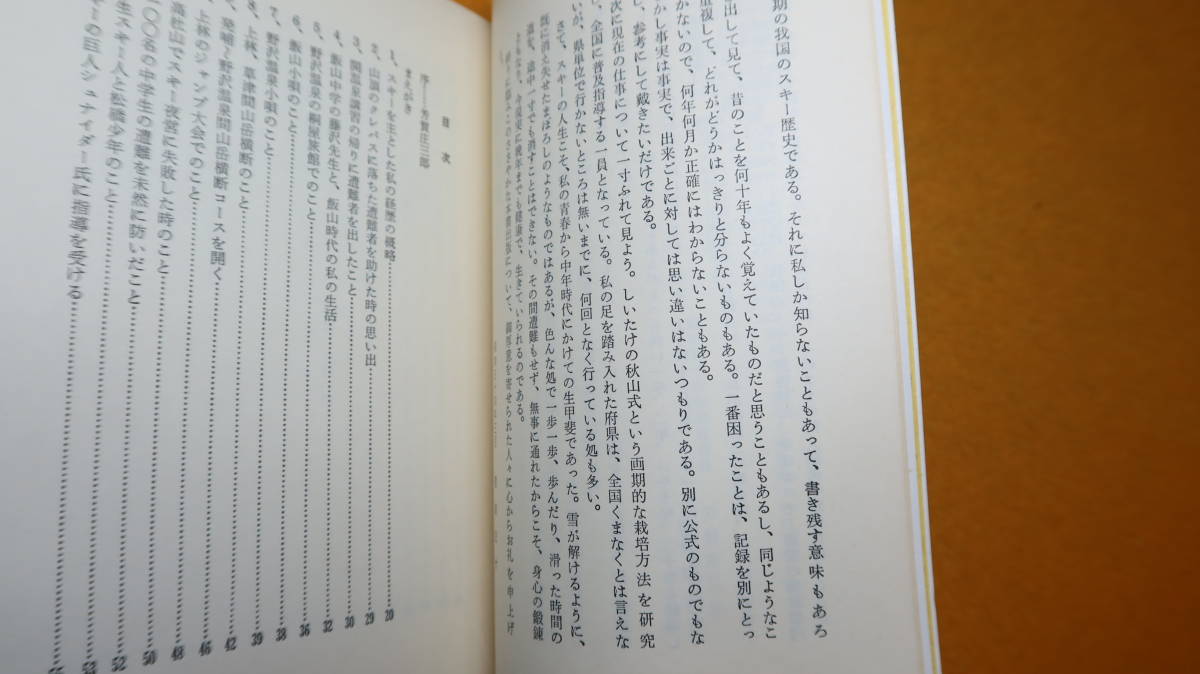 期の我国のスキー歴史である。それに私しか知らないこともあって、書き残す意味もあろ
出して見て、昔のことを何十年もよく覚えていたものだと思うこともあるし、同じようなこ
重複して、どれがどうかはっきりと分らないものもある。一番困ったことは、記録を別にとっ
かないので、何年何月か正確にはわからないこともある。
かし事実は事実で、出来ごとに対しては思い違いはないつもりである。別に公式のものでもな
し、参考にして戴きたいだけである。
次に現在の仕事について一寸ふれて見よう。しいたけの秋山式という画期的な栽培方法を研究
し、全国に普及指導する一員となっている。私の足を踏み入れた府県は、全国くまなくとは言えな
いが、県単位で行かないところは無いまでに、何回となく行っている処も多い。
さて、スキーの人生こそ、私の青春から中年時代にかけての生甲斐であった。雪が解けるように、
既に消え失せたまぼろしのようなものではあるが、色んな処で一歩一歩、歩んだり、滑った時間の
途中一寸でも消すことはできない。その間遭難もせず、無事に通れたからこそ、身心の鍛錬
晩年までも健康で、生きていられるのである。
このささやかな本書出版について、御厚意を寄せられた人々に心からお礼を申上げ
目次
序……芳賀庄三郎
まえがき
1、スキーを主とした私の経歴の概略……20
2、山調のクレバスに落ちた遭難者を助けた時の思い出……29
3、関温泉講習の帰りに遭難者を出したこと……30
4、飯山中学の藤沢先生と、飯山時代の私の生活……32
5、野沢温泉の桐屋旅館でのこと……36
6、飯山小唄のこと……38
7、野沢温泉小唄のこと……39
8、上林、草津間山岳横断のこと……42
、発哺と野沢温泉間山岳横断コースを開く……46
上林のジャンプ大会でのこと……48
高社山でスキー夜営に失敗した時のこと……50
〇〇名の中学生の遭難を未然に防いだこと……52
生スキー人と松橋少年のこと……53
キーの巨人シュナイダー氏に指導を受ける……